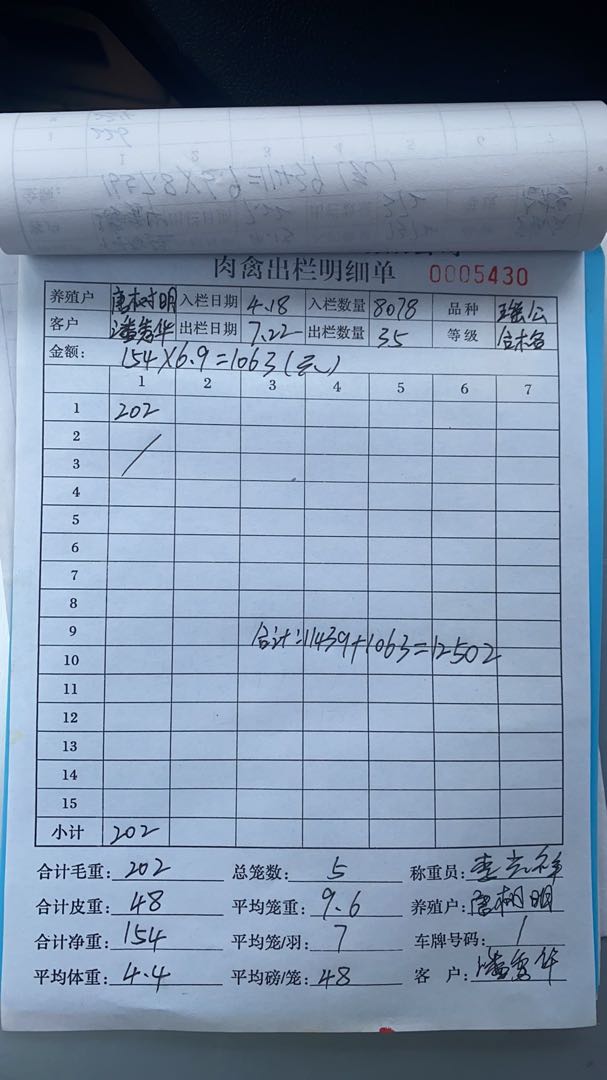 肉禽出栏明细单 0005430
养殖户 唐树明 入栏日期 4.18 入栏数量 8078 品种 瑶公
客户 潘秀华 出栏日期 7.22 出栏数量 35 等级
金额: 154×6.9=1063(元)
1 2 3 4 5 6 7
1 202
2
3
4
5
6
7
8
9
合计:11439+1063=12502
10
11
12
13
14
15
小计 202
合计毛重: 202 总笼数: 5 称重员:
合计皮重: 48 平均笼重: 9.6 养殖户: 唐树明
合计净重: 154 平均笼/羽: 7 车牌号码: /
平均体重: 4.4 平均磅/笼: 48 客 户: 潘秀华